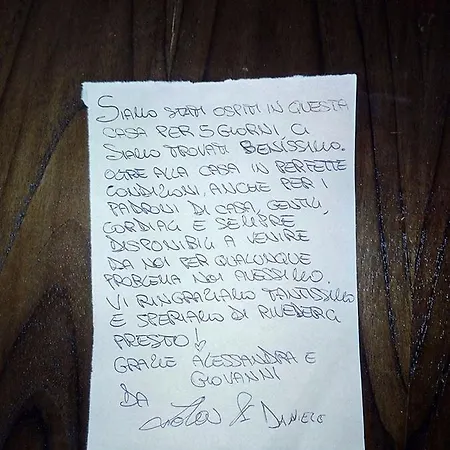 SIAMO STATI OSPITI IN QUESTA
CASA PER 5 GIORNI, CI
SIAMO TROVATI BENISSIMO.
OLTRE ALLA CASA IN PERFETTE
CONDIZIONI, ANCHE PER I
PADRONI DI CASA, GENTILI,
CORDIALI E SEMPRE
DISPONIBILI A VENIRE
DA NOI PER QUALUNQUE
PROBLEMA NOI AVESSIMO.
VI RINGRAZIAMO TANTISSIMO
E SPERIAMO DI RIVEDERCI
PRESTO!
GRAZIE ALESSANDRA E
GIOVANNI
DA
& DANIELE